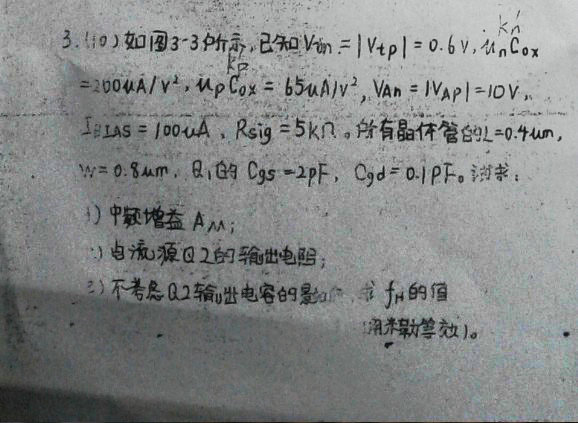 kn'
3.(10)如图3-3所示,已知Vtn=|Vtp|=0.6V,μnCox
kp'
=200uA/V²,μpCox=65uA/V²,VAn=|VAp|=10V,
IBIAS=100uA,Rsig=5kΩ。所有晶体管的L=0.4um,
W=0.8um,Q1的Cgs=2pF,Cgd=0.1pF。试求:
1)中频增益AM;
2)电流源Q2的输出电阻;
3)不考虑Q2输出电容的影响,求fH的值
用米勒等效)。